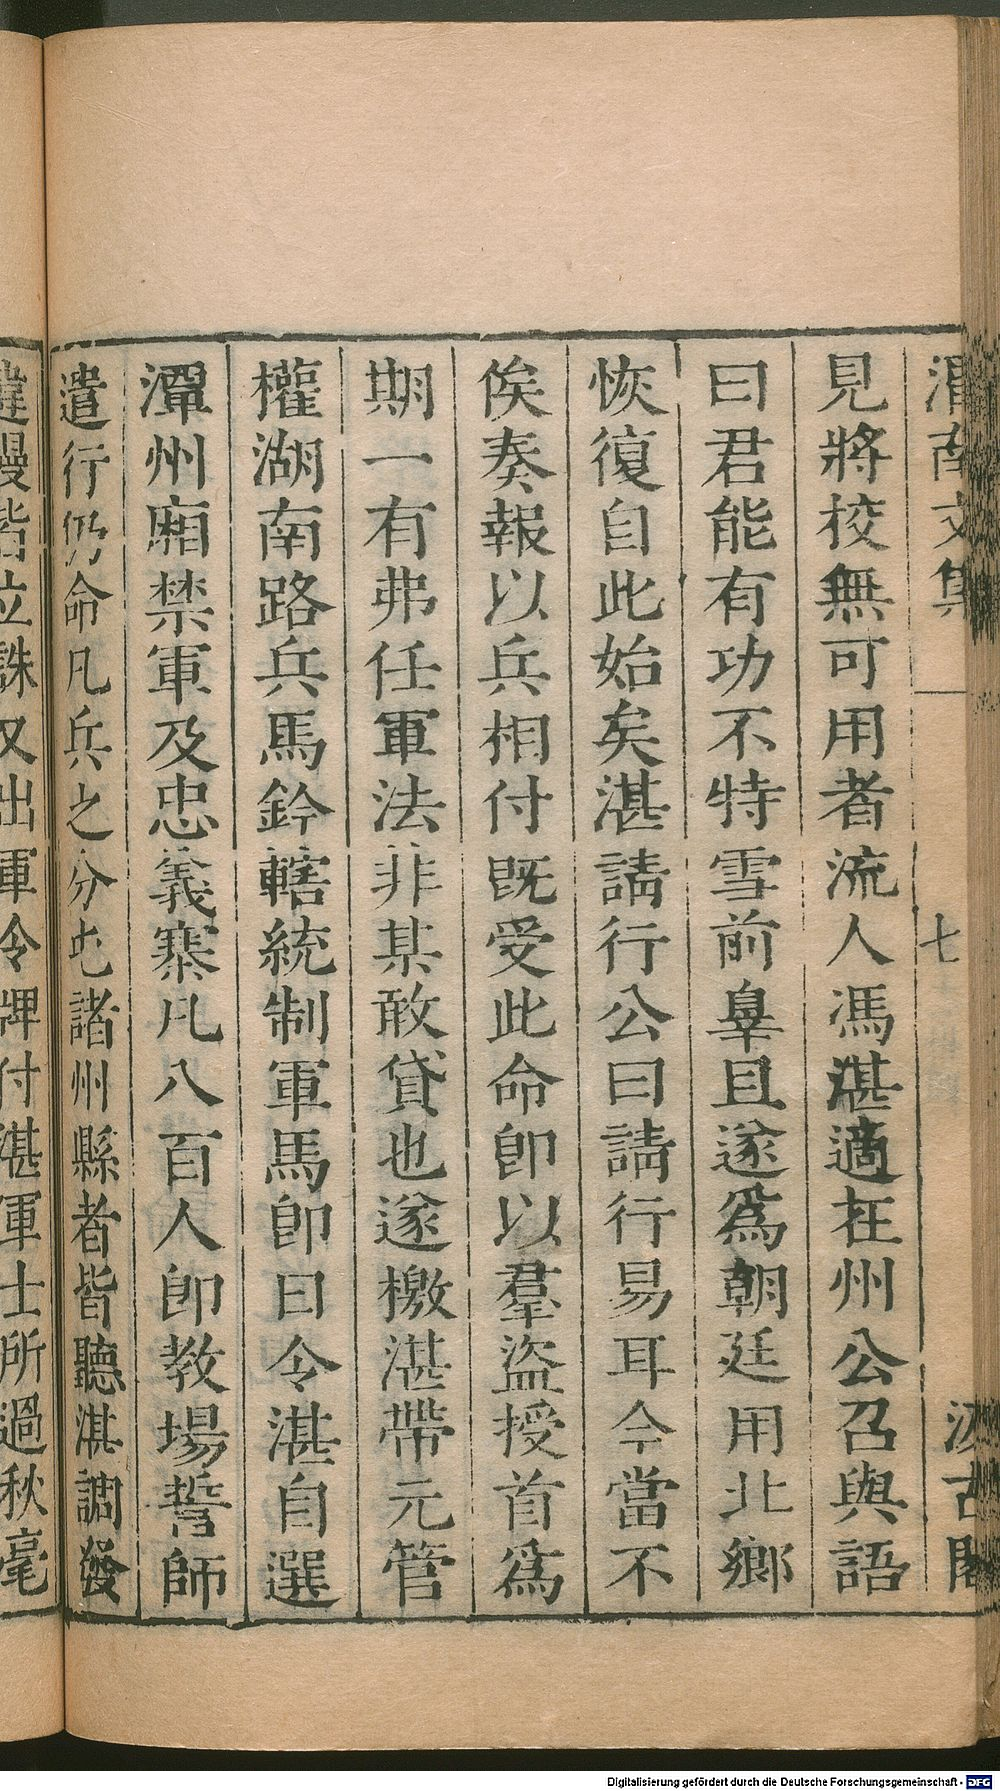 渭南文集 七 汲古閣
見將校無可用者流人馮湛適在州公召與語
曰君能有功不特雪前辠且遂爲朝廷用北鄉
恢復自此始矣湛請行公曰請行易耳今當不
俟奏報以兵相付既受此命卽以羣盜授首爲
期一有弗任軍法非某敢貸也遂檄湛帶元管
權湖南路兵馬鈐轄統制軍馬卽日令湛自選
潭州廂禁軍及忠義寨凡八百人卽教場誓師
遣行仍命凡兵之分屯諸州縣者皆聽湛調發
違慢皆立誅又出軍令牌付湛軍士所過秋毫
Digitalisierung gefördert durch die Deutsche Forschungsgemeinschaft - DFG